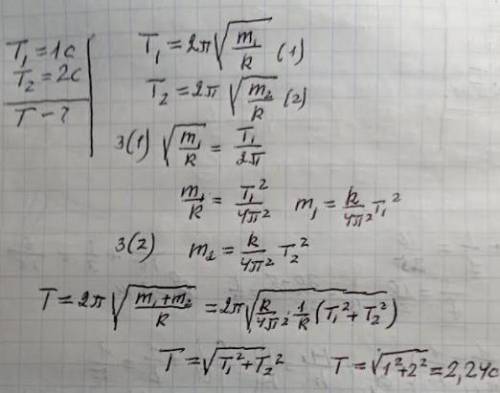 T₁ = 1с
T₂ = 2с
T - ?
T₁ = 2π√(m₁/k) (1)
T₂ = 2π√(m₂/k) (2)
З(1) √(m₁/k) = T₁/2π
m₁/k = T₁²/4π² m₁ = k/4π² T₁²
З(2) m₂ = k/4π² T₂²
T = 2π√((m₁+m₂)/k) = 2π√(k/4π² · 1/k (T₁² + T₂²))
T = √(T₁² + T₂²) T = √(1² + 2²) = 2,24с